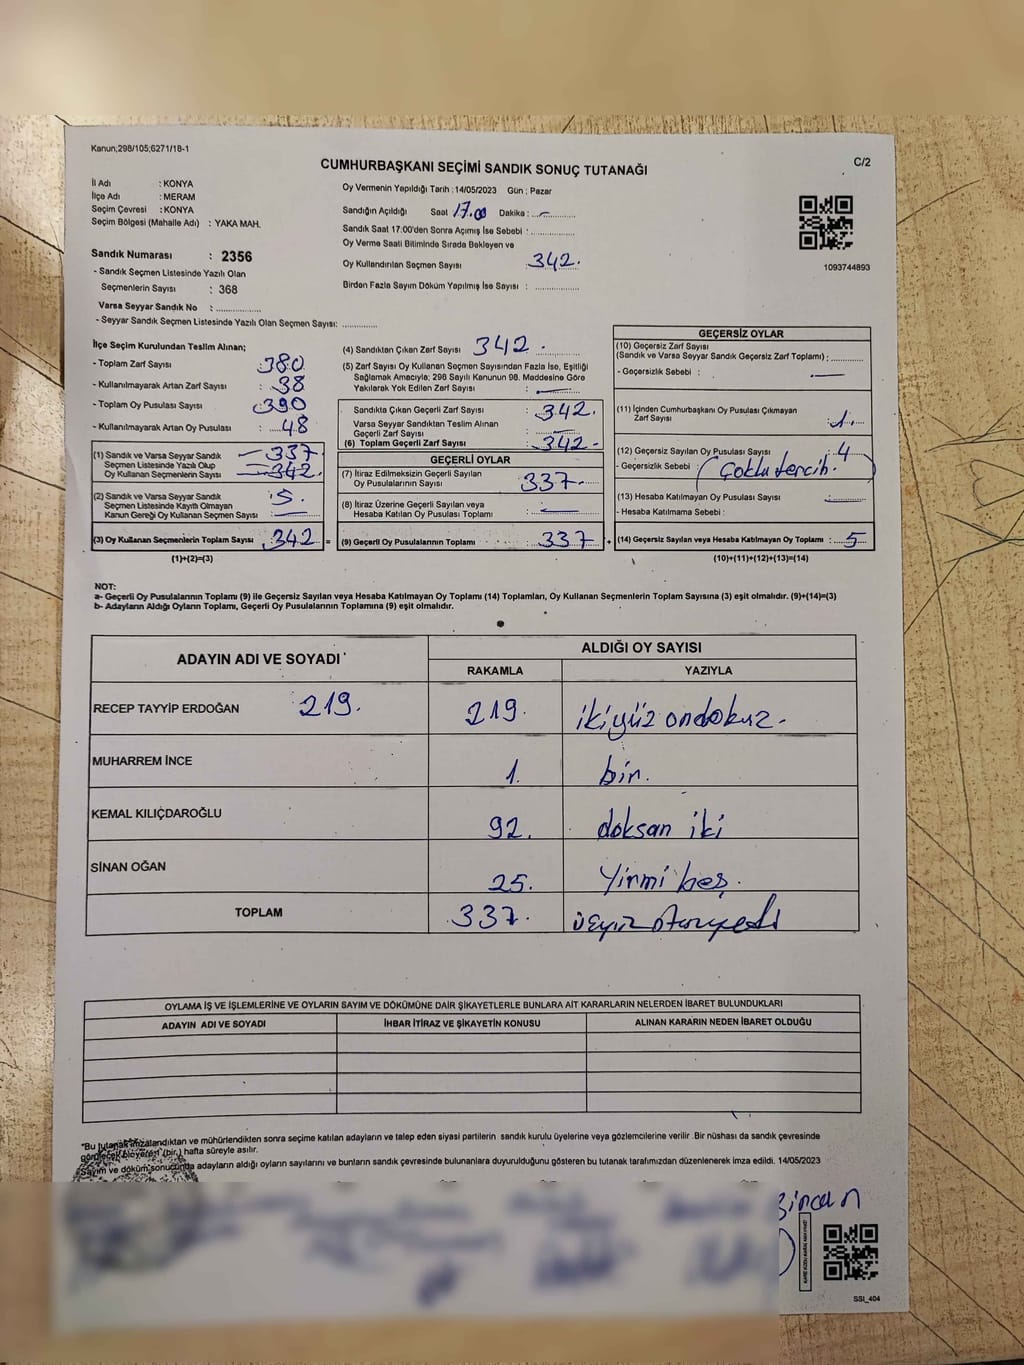 Kanun;298/105;6271/18-1
CUMHURBAŞKANI SEÇİMİ SANDIK SONUÇ TUTANAĞI
C/2
İl Adı : KONYA
İlçe Adı : MERAM
Seçim Çevresi : KONYA
Seçim Bölgesi (Mahalle Adı) : YAKA MAH.
Sandık Numarası : 2356
- Sandık Seçmen Listesinde Yazılı Olan
Seçmenlerin Sayısı : 368
Varsa Seyyar Sandık No :
- Seyyar Sandık Seçmen Listesinde Yazılı Olan Seçmen Sayısı:
Oy Vermenin Yapıldığı Tarih : 14/05/2023 Gün : Pazar
Sandığın Açıldığı Saat 17.00 Dakika : -
Sandık Saat 17:00'den Sonra Açımış İse Sebebi :
Oy Verme Saati Bitiminde Sırada Bekleyen ve
Oy Kullandırılan Seçmen Sayısı 342.
Birden Fazla Sayım Döküm Yapılmış İse Sayısı :
1093744893
İlçe Seçim Kurulundan Teslim Alınan;
- Toplam Zarf Sayısı : 380
- Kullanılmayarak Artan Zarf Sayısı : 38
- Toplam Oy Pusulası Sayısı : 390
- Kullanılmayarak Artan Oy Pusulası : 48
(1) Sandık ve Varsa Seyyar Sandık 337
Seçmen Listesinde Yazılı Olup
Oy Kullanan Seçmenlerin Sayısı 342.
(2) Sandık ve Varsa Seyyar Sandık : 5.
Seçmen Listesinde Kayıtlı Olmayan
Kanun Gereği Oy Kullanan Seçmen Sayısı : -
(3) Oy Kullanan Seçmenlerin Toplam Sayısı : 342 =
(1)+(2)=(3)
(4) Sandıktan Çıkan Zarf Sayısı 342.
(5) Zarf Sayısı Oy Kullanan Seçmen Sayısından Fazla İse, Eşitliği
Sağlamak Amacıyla; 298 Sayılı Kanunun 98. Maddesine Göre
Yakılarak Yok Edilen Zarf Sayısı : -
Sandıkta Çıkan Geçerli Zarf Sayısı : 342.
Varsa Seyyar Sandıktan Teslim Alınan
Geçerli Zarf Sayısı : -
(6) Toplam Geçerli Zarf Sayısı : 342-
GEÇERLİ OYLAR
(7) İtiraz Edilmeksizin Geçerli Sayılan
Oy Pusulalarının Sayısı : 337.
(8) İtiraz Üzerine Geçerli Sayılan veya
Hesaba Katılan Oy Pusulası Toplamı : -
(9) Geçerli Oy Pusulalarının Toplamı : 337 +
GEÇERSİZ OYLAR
(10) Geçersiz Zarf Sayısı
(Sandık ve Varsa Seyyar Sandık Geçersiz Zarf Toplamı) :
- Geçersizlik Sebebi : -
(11) İçinden Cumhurbaşkanı Oy Pusulası Çıkmayan
Zarf Sayısı : 1.
(12) Geçersiz Sayılan Oy Pusulası Sayısı : 4
- Geçersizlik Sebebi : (Çoklu tercih.)
(13) Hesaba Katılmayan Oy Pusulası Sayısı : -
- Hesaba Katılmama Sebebi :
(14) Geçersiz Sayılan veya Hesaba Katılmayan Oy Toplamı : 5
(10)+(11)+(12)+(13)=(14)
NOT:
a- Geçerli Oy Pusulalarının Toplamı (9) ile Geçersiz Sayılan veya Hesaba Katılmayan Oy Toplamı (14) Toplamları, Oy Kullanan Seçmenlerin Toplam Sayısına (3) eşit olmalıdır. (9)+(14)=(3)
b- Adayların Aldığı Oyların Toplamı, Geçerli Oy Pusulalarının Toplamına (9) eşit olmalıdır.
ADAYIN ADI VE SOYADI
ALDIĞI OY SAYISI
RAKAMLA YAZIYLA
RECEP TAYYİP ERDOĞAN 219. 219. ikiyüz ondokuz.
MUHARREM İNCE 1. bir.
KEMAL KILIÇDAROĞLU 92. doksan iki
SİNAN OĞAN 25. Yirmi beş.
TOPLAM 337. üçyüz otuzyedi
OYLAMA İŞ VE İŞLEMLERİNE VE OYLARIN SAYIM VE DÖKÜMÜNE DAİR ŞİKAYETLERLE BUNLARA AİT KARARLARIN NELERDEN İBARET BULUNDUKLARI
ADAYIN ADI VE SOYADI İHBAR İTİRAZ VE ŞİKAYETİN KONUSU ALINAN KARARIN NEDEN İBARET OLDUĞU
"Bu tutanak imzalandıktan ve mühürlendikten sonra seçime katılan adayların ve talep eden siyasi partilerin sandık kurulu üyelerine veya gözlemcilerine verilir .Bir nüshası da sandık çevresinde
görülecek bir yere 1 (bir.) hafta süreyle asılır.
Sayım ve döküm sonucunda adayların aldığı oyların sayılarını ve bunların sandık çevresinde bulunanlara duyurulduğunu gösteren bu tutanak tarafımızdan düzenlenerek imza edildi. 14/05/2023
SSI_404